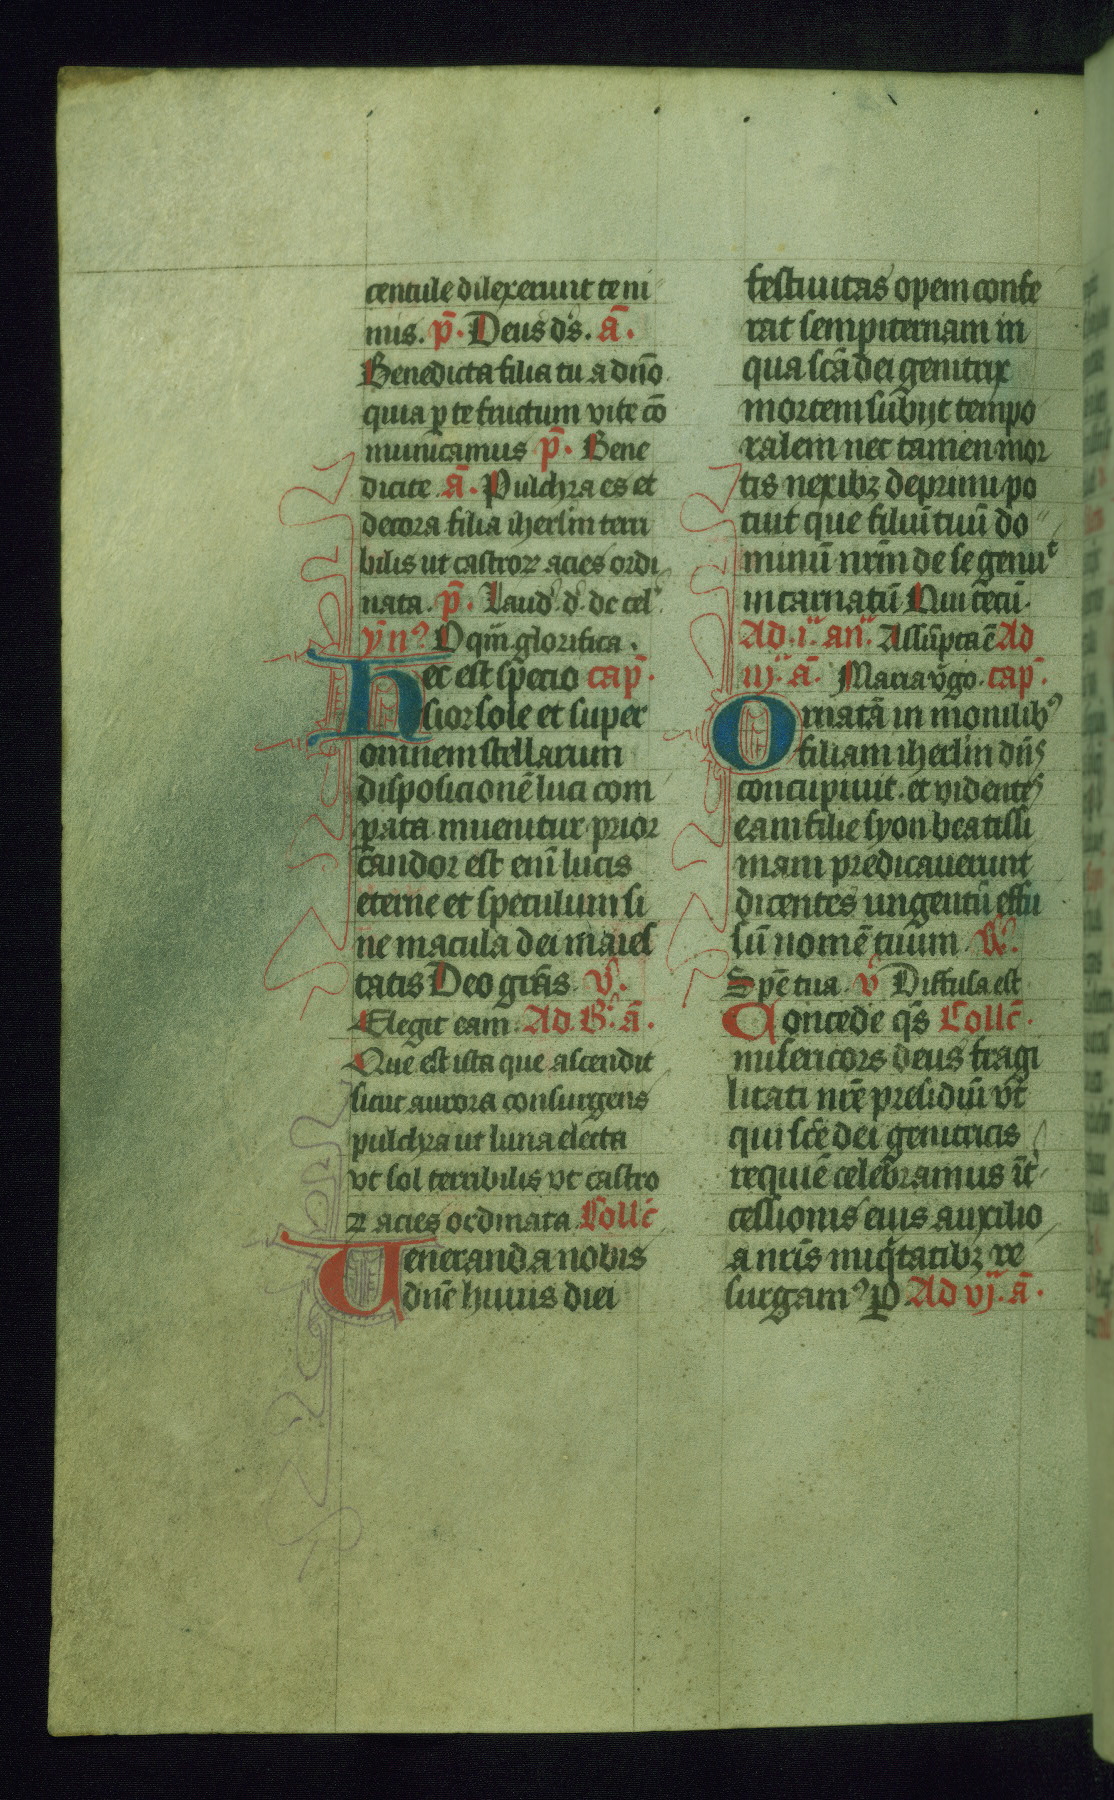 centule dilexerunt te ni
mis. p̄. Deus d̄s. ā.
Benedicta filia tu a dn̄o
quia ꝑ te fructum vite cō
municamus p̄. Bene
dicite. ā. Pulchra es et
decora filia iherl̄m terri
bilis ut castroꝝ acies ordi
nata. p̄. Laud. d. de cel.
ym̄. O qm̄ glorifica.
Hec est specio cap̄.
sior sole et super
omnem stellarum
disposicionē luci com
parata inuenitur prior
candor est enī lucis
eterne et speculum si
ne macula dei maies
tatis Deo gr̄as. v̄.
Elegit eam. Ad. B. ā.
Que est ista que ascendit
sicut aurora consurgens
pulchra ut luna electa
vt sol terribilis vt castro
ꝝ acies ordinata. Collc̄
Veneranda nobis
dn̄e huius diei
festiuitas opem confe
rat sempiternam in
qua sc̄a dei genitrix
mortem subijt tempo
ralem nec tamen mor
tis nexibꝫ deprimi po
tuit que filiū tuū do
minū nr̄m de se genuᵗ
incarnatū Qui tecū.
Ad .i. an̄. Assūpta ē Ad
iij. ā. Maria v̄go. cap̄.
Ornatā in monilibꝰ
filiam iherl̄m dn̄s
concupiuit. et videntes
eam filie syon beatissi
mam predicauerunt
dicentes ungentū effu
sū nomē tuum. R̄.
Spē tua. v̄ Diffusa est
Concede q̄s Collc̄.
misericors deus fragi
litati nr̄e presidiū vt̄
qui sc̄e dei genitricis
requiē celebramus īt̄
cessionis eius auxilio
a nr̄is niq̄tatibꝫ re
surgamꝰ P. Ad vj. ā.